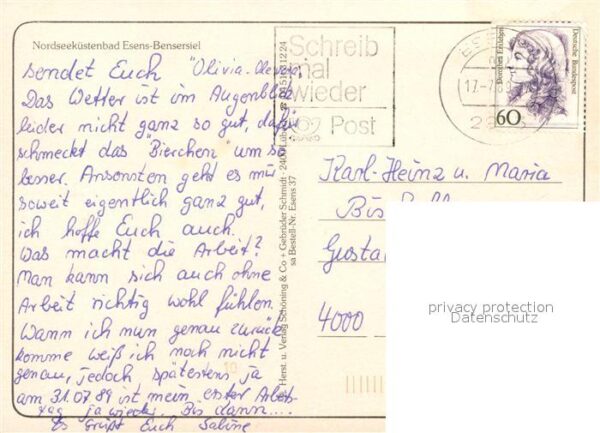 Nordseeküstenbad Esens-Bensersiel
sendet Euch "Olivia-
Das Wetter ist im Augenblick
leider nicht ganz so gut, dafür
schmeckt das "Bierchen" um so
besser. Ansonsten geht es mir
soweit eigentlich ganz gut,
ich hoffe Euch auch.
Was macht die Arbeit?
Man kann sich auch ohne
Arbeit richtig wohl fühlen.
Wann ich nun genau zurück
komme weiß ich noch nicht
genau, jedoch spätestens ja
am 31.07.89 ist mein erster Arbeits-
tag ja wieder. Bis dann....
Es grüßt Euch Sabine
Herst. u. Verlag Schöning & Co + Gebrüder Schmidt
sa Bestell-Nr. Esens 37
Schreib
mal
wieder
Post
17.-7.89
Dorothea Erxleben
Deutsche Bundespost
60
Karl-Heinz u. Maria
Gusta
4000
privacy protection
Datenschutz